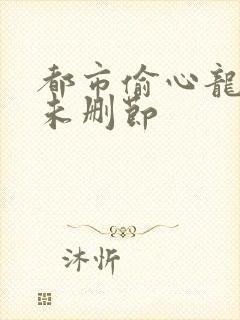 都市偷心龍
未删節
沐忻